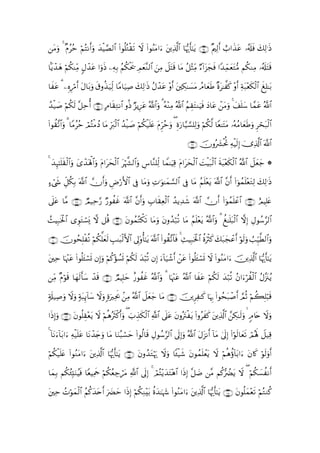 ذَٰلِكَ فَلَهُۥ عَذَابٌ أَلِيمٌ ۝ يَٰٓأَيُّهَا ٱلَّذِينَ ءَامَنُوا۟ لَا تَقْتُلُوا۟ ٱلصَّيْدَ وَأَنتُمْ حُرُمٌ ۚ وَمَن
قَتَلَهُۥ مِنكُم مُّتَعَمِّدًا فَجَزَآءٌ مِّثْلُ مَا قَتَلَ مِنَ ٱلنَّعَمِ يَحْكُمُ بِهِۦ ذَوَا عَدْلٍ مِّنكُمْ هَدْيًۢا
بَٰلِغَ ٱلْكَعْبَةِ أَوْ كَفَّٰرَةٌ طَعَامُ مَسَٰكِينَ أَوْ عَدْلُ ذَٰلِكَ صِيَامًا لِّيَذُوقَ وَبَالَ أَمْرِهِۦ ۗ عَفَا
ٱللَّهُ عَمَّا سَلَفَ ۚ وَمَنْ عَادَ فَيَنتَقِمُ ٱللَّهُ مِنْهُ ۗ وَٱللَّهُ عَزِيزٌ ذُو ٱنتِقَامٍ ۝ أُحِلَّ لَكُمْ صَيْدُ
ٱلْبَحْرِ وَطَعَامُهُۥ مَتَٰعًا لَّكُمْ وَلِلسَّيَّارَةِ ۖ وَحُرِّمَ عَلَيْكُمْ صَيْدُ ٱلْبَرِّ مَا دُمْتُمْ حُرُمًا ۗ وَٱتَّقُوا۟
ٱللَّهَ ٱلَّذِىٓ إِلَيْهِ تُحْشَرُونَ ۝
۞ جَعَلَ ٱللَّهُ ٱلْكَعْبَةَ ٱلْبَيْتَ ٱلْحَرَامَ قِيَٰمًا لِّلنَّاسِ وَٱلشَّهْرَ ٱلْحَرَامَ وَٱلْهَدْىَ وَٱلْقَلَٰٓئِدَ ۚ
ذَٰلِكَ لِتَعْلَمُوٓا۟ أَنَّ ٱللَّهَ يَعْلَمُ مَا فِى ٱلسَّمَٰوَٰتِ وَمَا فِى ٱلْأَرْضِ وَأَنَّ ٱللَّهَ بِكُلِّ شَىْءٍ
عَلِيمٌ ۝ ٱعْلَمُوٓا۟ أَنَّ ٱللَّهَ شَدِيدُ ٱلْعِقَابِ وَأَنَّ ٱللَّهَ غَفُورٌ رَّحِيمٌ ۝ مَّا عَلَى
ٱلرَّسُولِ إِلَّا ٱلْبَلَٰغُ ۗ وَٱللَّهُ يَعْلَمُ مَا تُبْدُونَ وَمَا تَكْتُمُونَ ۝ قُل لَّا يَسْتَوِى ٱلْخَبِيثُ
وَٱلطَّيِّبُ وَلَوْ أَعْجَبَكَ كَثْرَةُ ٱلْخَبِيثِ ۚ فَٱتَّقُوا۟ ٱللَّهَ يَٰٓأُو۟لِى ٱلْأَلْبَٰبِ لَعَلَّكُمْ تُفْلِحُونَ ۝
يَٰٓأَيُّهَا ٱلَّذِينَ ءَامَنُوا۟ لَا تَسْـَٔلُوا۟ عَنْ أَشْيَآءَ إِن تُبْدَ لَكُمْ تَسُؤْكُمْ وَإِن تَسْـَٔلُوا۟ عَنْهَا حِينَ
يُنَزَّلُ ٱلْقُرْءَانُ تُبْدَ لَكُمْ عَفَا ٱللَّهُ عَنْهَا ۗ وَٱللَّهُ غَفُورٌ حَلِيمٌ ۝ قَدْ سَأَلَهَا قَوْمٌ مِّن
قَبْلِكُمْ ثُمَّ أَصْبَحُوا۟ بِهَا كَٰفِرِينَ ۝ مَا جَعَلَ ٱللَّهُ مِنۢ بَحِيرَةٍ وَلَا سَآئِبَةٍ وَلَا وَصِيلَةٍ
وَلَا حَامٍ ۙ وَلَٰكِنَّ ٱلَّذِينَ كَفَرُوا۟ يَفْتَرُونَ عَلَى ٱللَّهِ ٱلْكَذِبَ ۖ وَأَكْثَرُهُمْ لَا يَعْقِلُونَ ۝ وَإِذَا
قِيلَ لَهُمْ تَعَالَوْا۟ إِلَىٰ مَآ أَنزَلَ ٱللَّهُ وَإِلَى ٱلرَّسُولِ قَالُوا۟ حَسْبُنَا مَا وَجَدْنَا عَلَيْهِ ءَابَآءَنَآ ۚ
أَوَلَوْ كَانَ ءَابَآؤُهُمْ لَا يَعْلَمُونَ شَيْـًٔا وَلَا يَهْتَدُونَ ۝ يَٰٓأَيُّهَا ٱلَّذِينَ ءَامَنُوا۟ عَلَيْكُمْ
أَنفُسَكُمْ ۖ لَا يَضُرُّكُم مَّن ضَلَّ إِذَا ٱهْتَدَيْتُمْ ۚ إِلَى ٱللَّهِ مَرْجِعُكُمْ جَمِيعًا فَيُنَبِّئُكُم بِمَا
كُنتُمْ تَعْمَلُونَ ۝ يَٰٓأَيُّهَا ٱلَّذِينَ ءَامَنُوا۟ شَهَٰدَةُ بَيْنِكُمْ إِذَا حَضَرَ أَحَدَكُمُ ٱلْمَوْتُ حِينَ